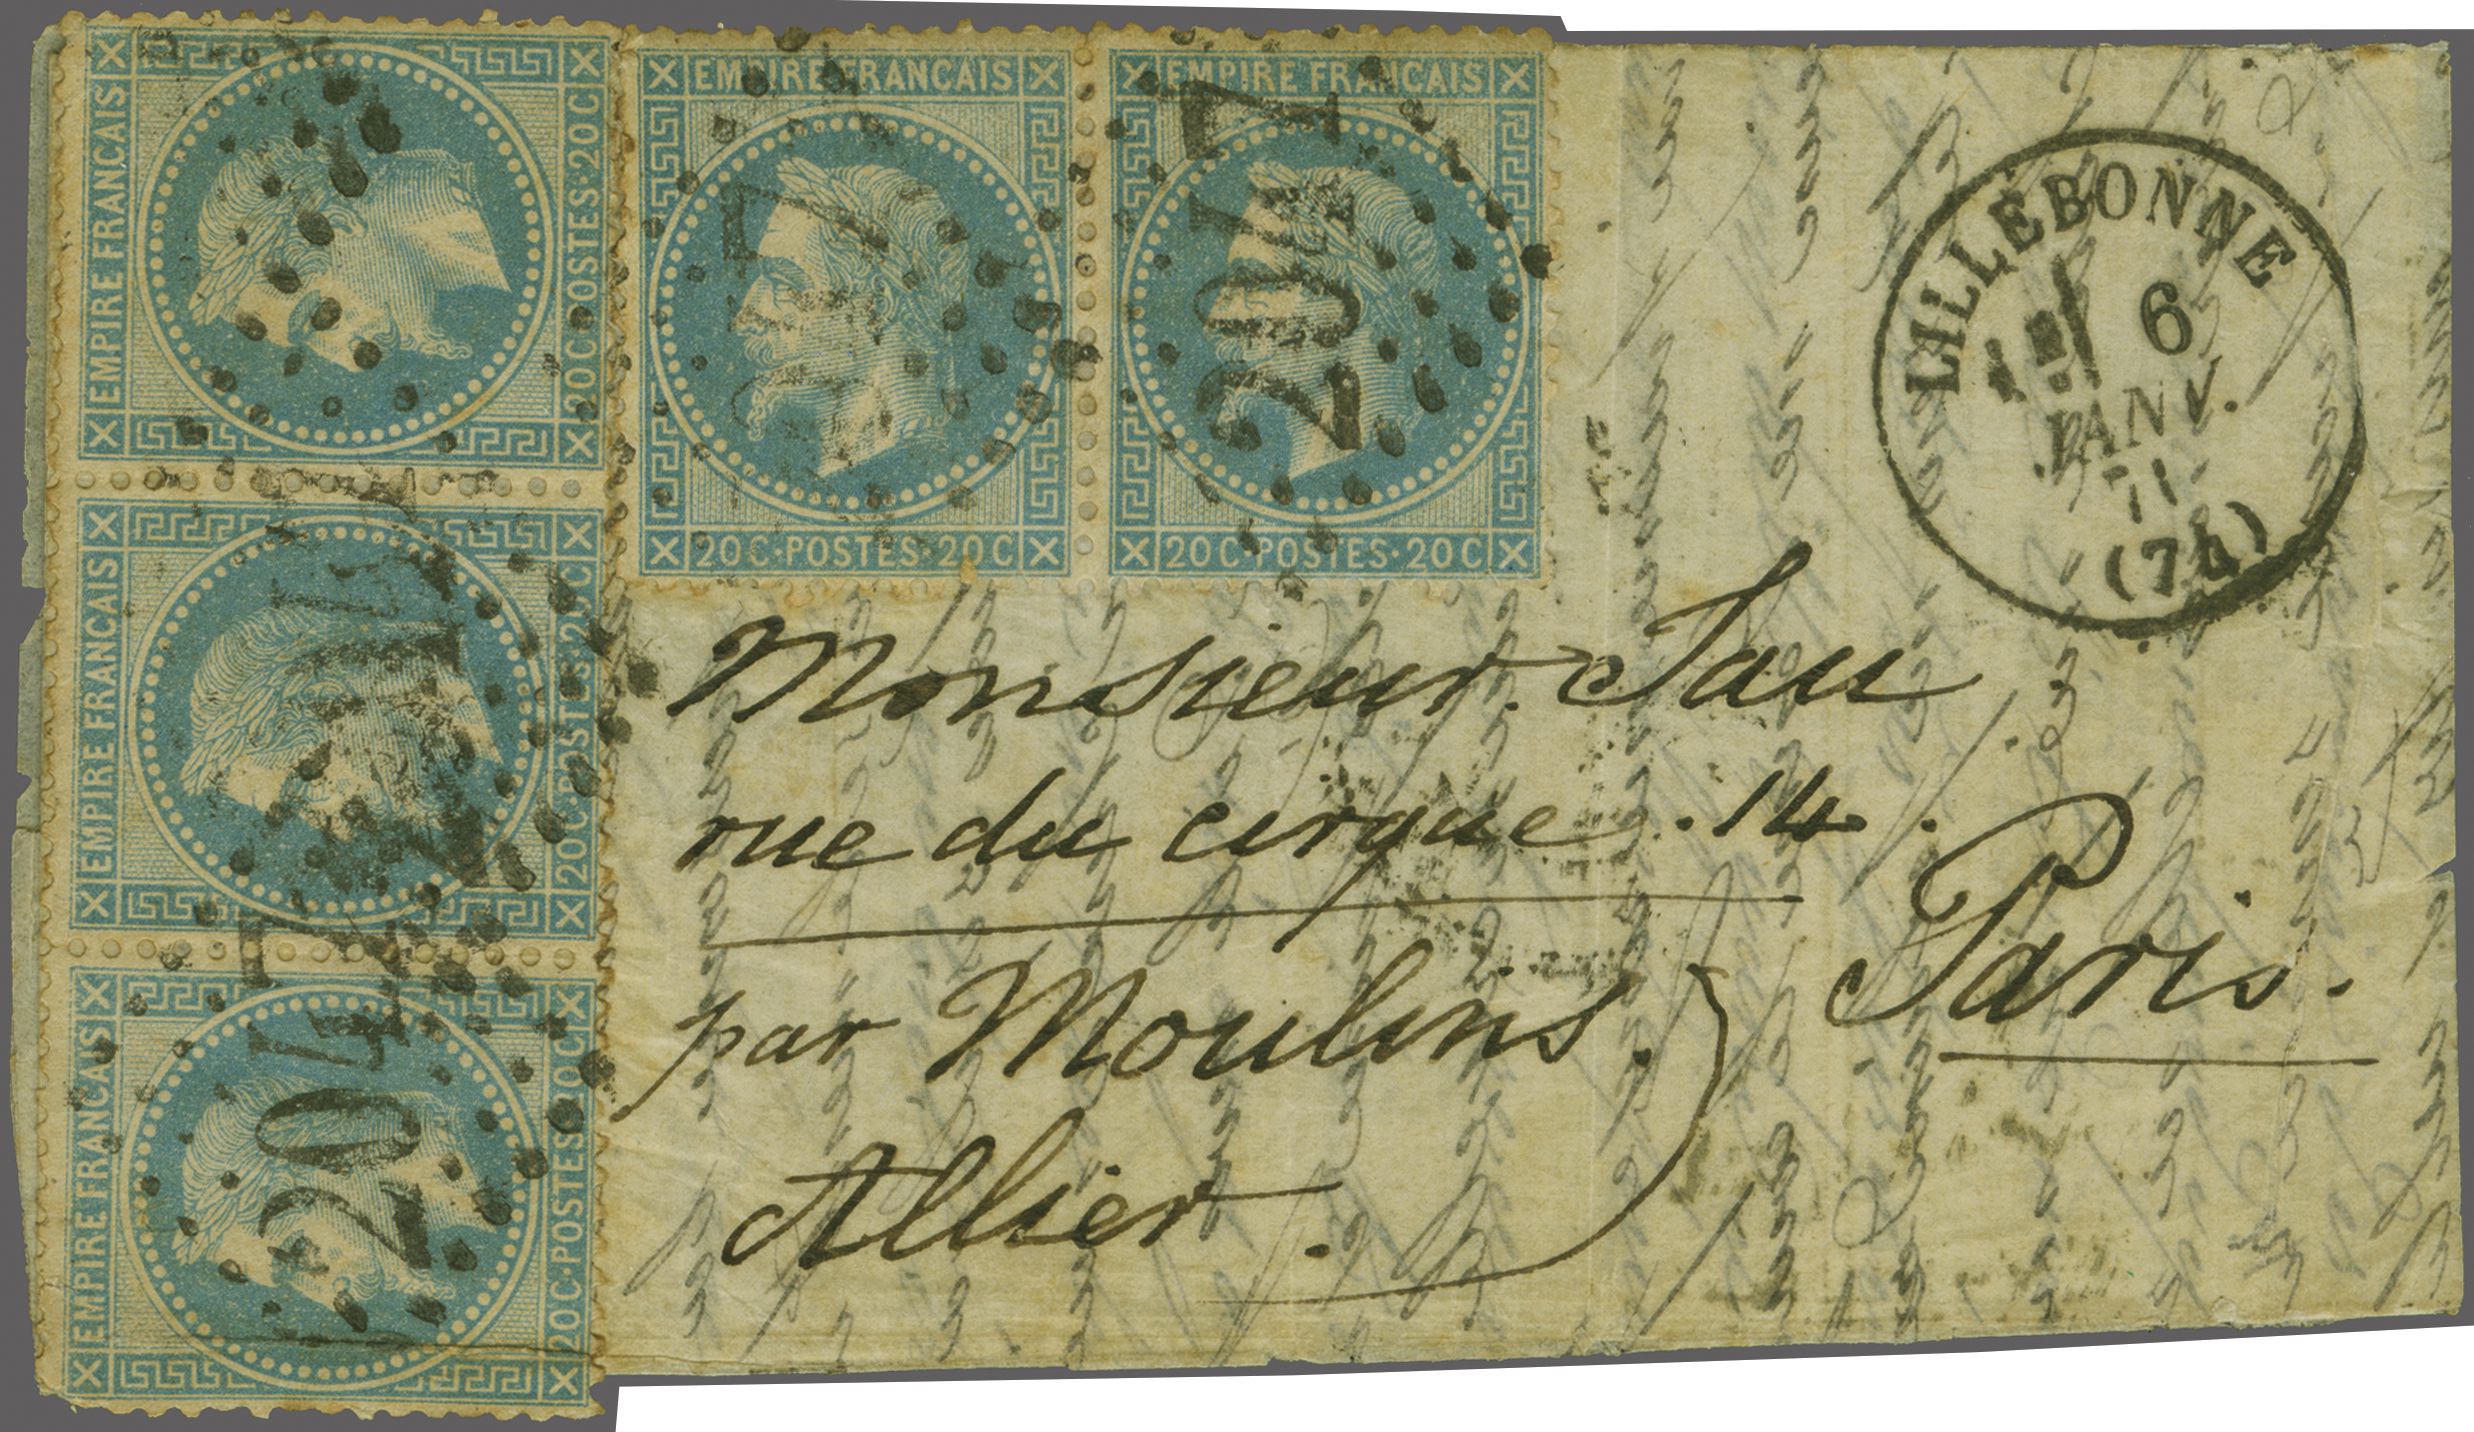 EMPIRE FRANCAIS
20C·POSTES·20C
EMPIRE FRANCAIS
20C·POSTES·20C
EMPIRE FRANCAIS
20C·POSTES·20C
EMPIRE FRANCAIS
20C·POSTES·20C
EMPIRE FRANCAIS
20C·POSTES·20C
2047
2047
LILLEBONNE
6
JANV.
71
(74)
Monsieur Sau
rue du cirque .14.
Paris.
par Moulins.
Allier.